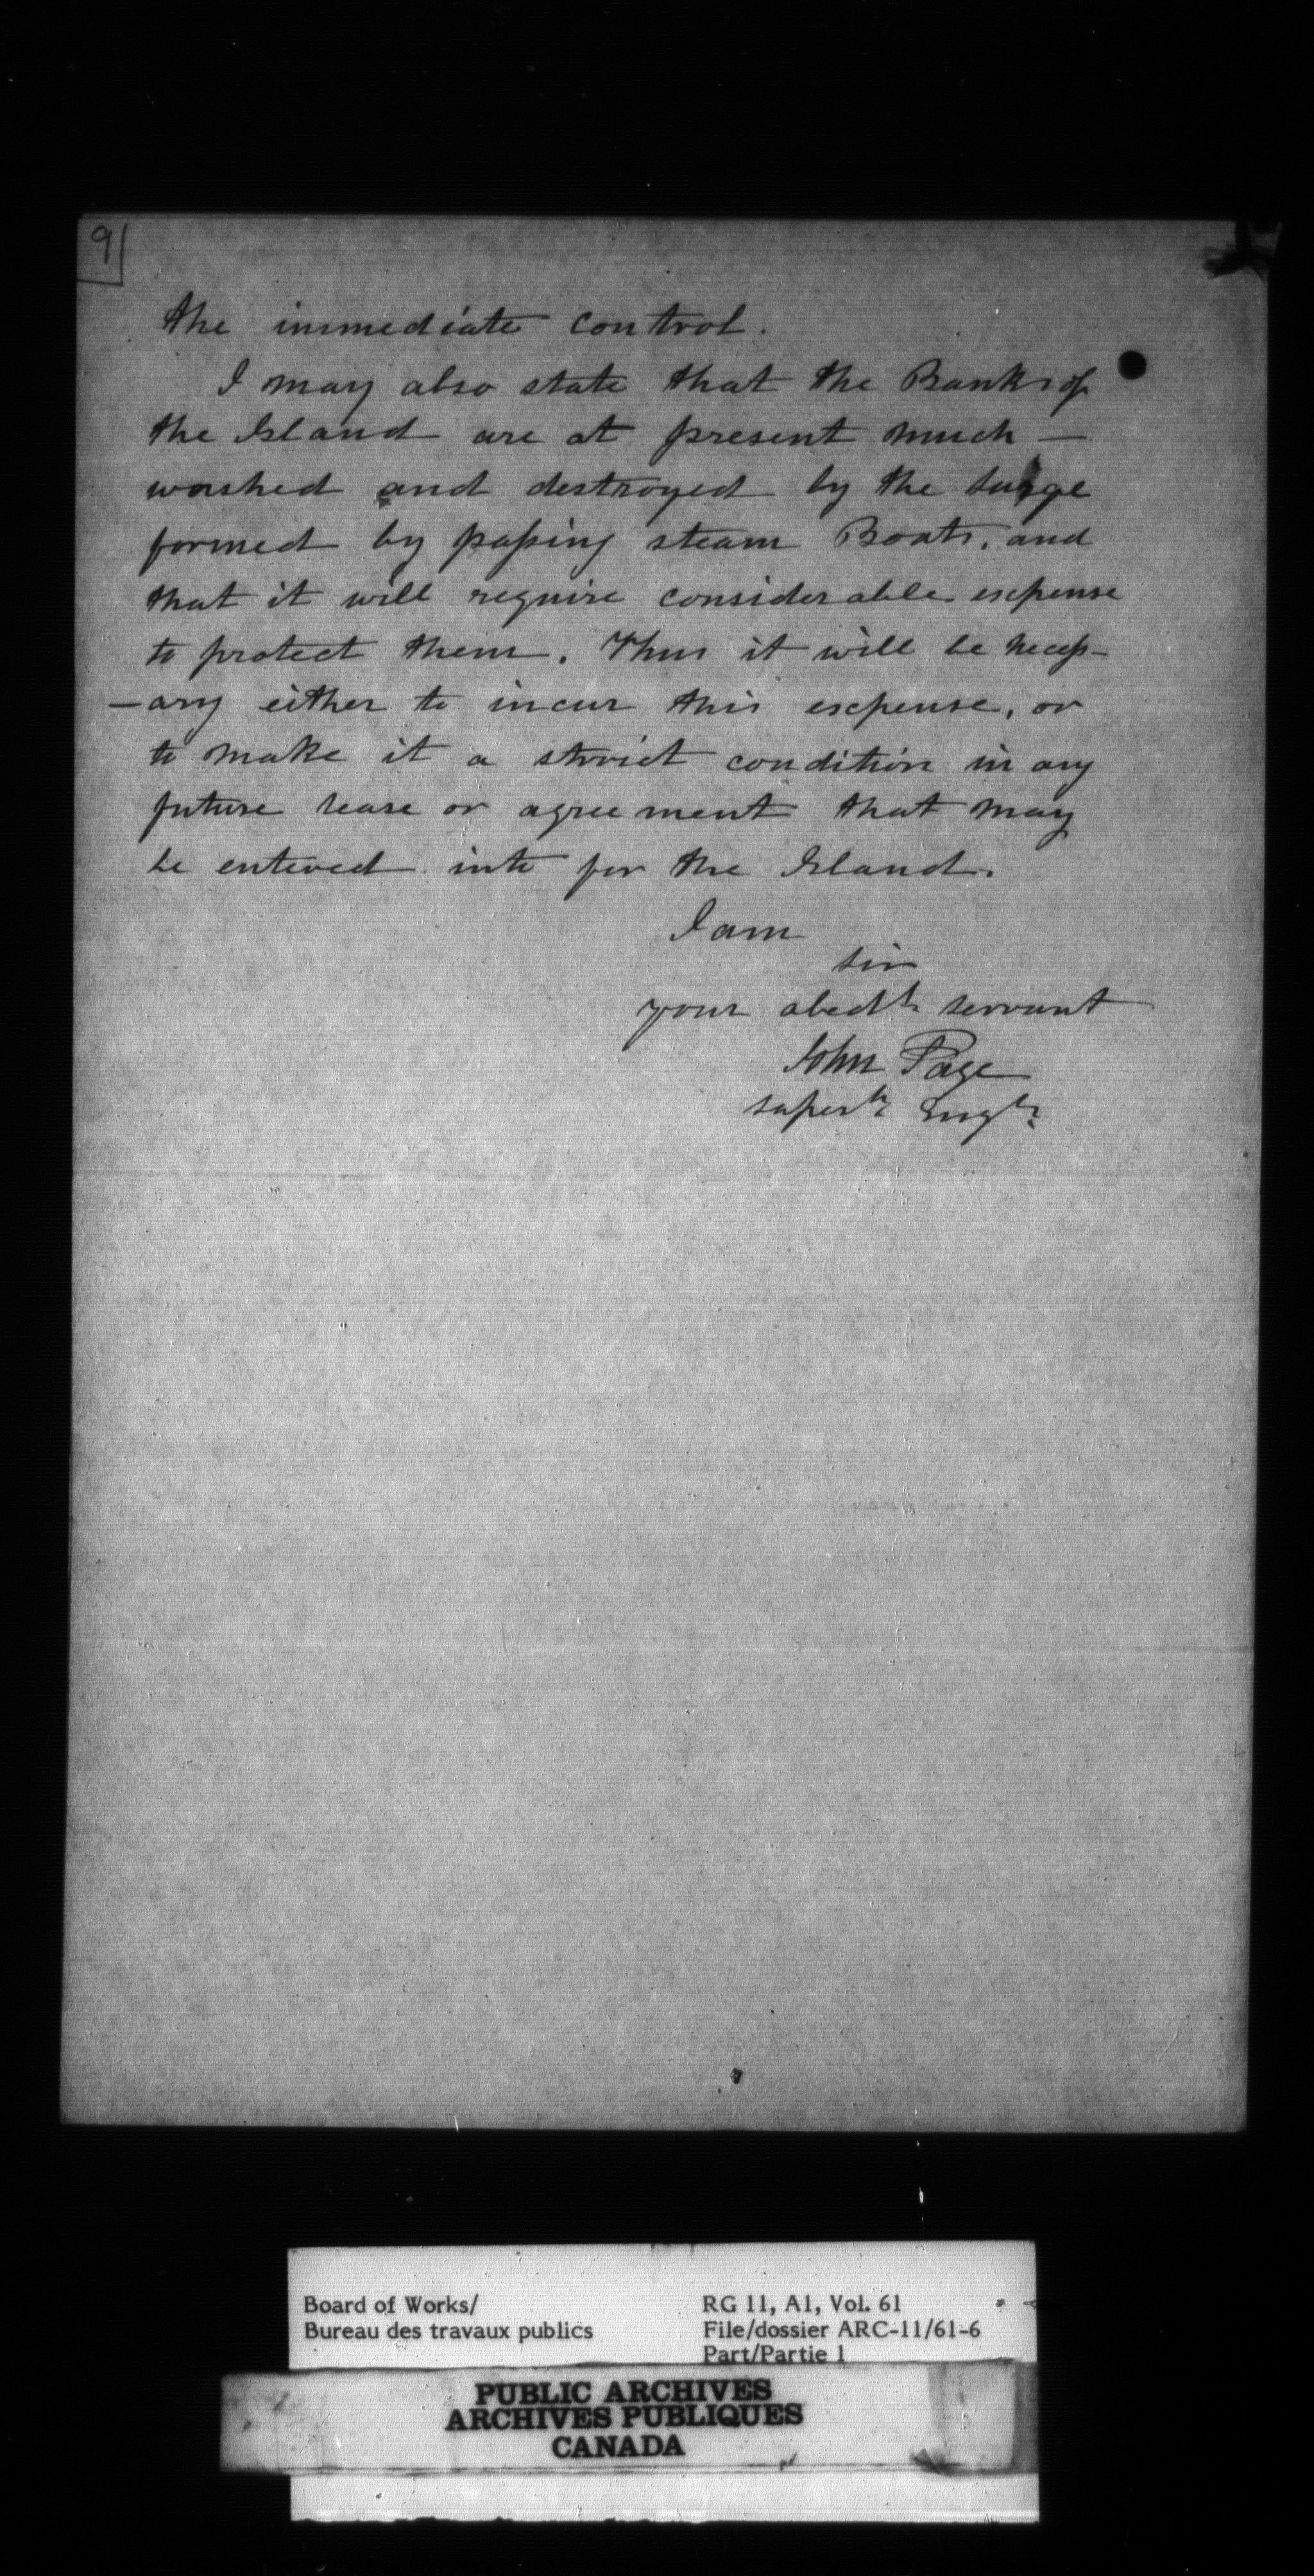 91
the immediate control.
I may also state that the Banks of
the Island are at present much —
washed and destroyed by the surge
formed by passing steam Boats, and
that it will require considerable expense
to protect them. Thus it will be necess-
-ary either to incur this expense, or
to make it a strict condition in any
future lease or agreement that may
be entered into for the Island.
I am
Sir
your obedt. servant
John Page
Supert. Engr.
Board of Works/
Bureau des travaux publics
RG 11, A1, Vol. 61
File/dossier ARC-11/61-6
Part/Partie 1
PUBLIC ARCHIVES
ARCHIVES PUBLIQUES
CANADA